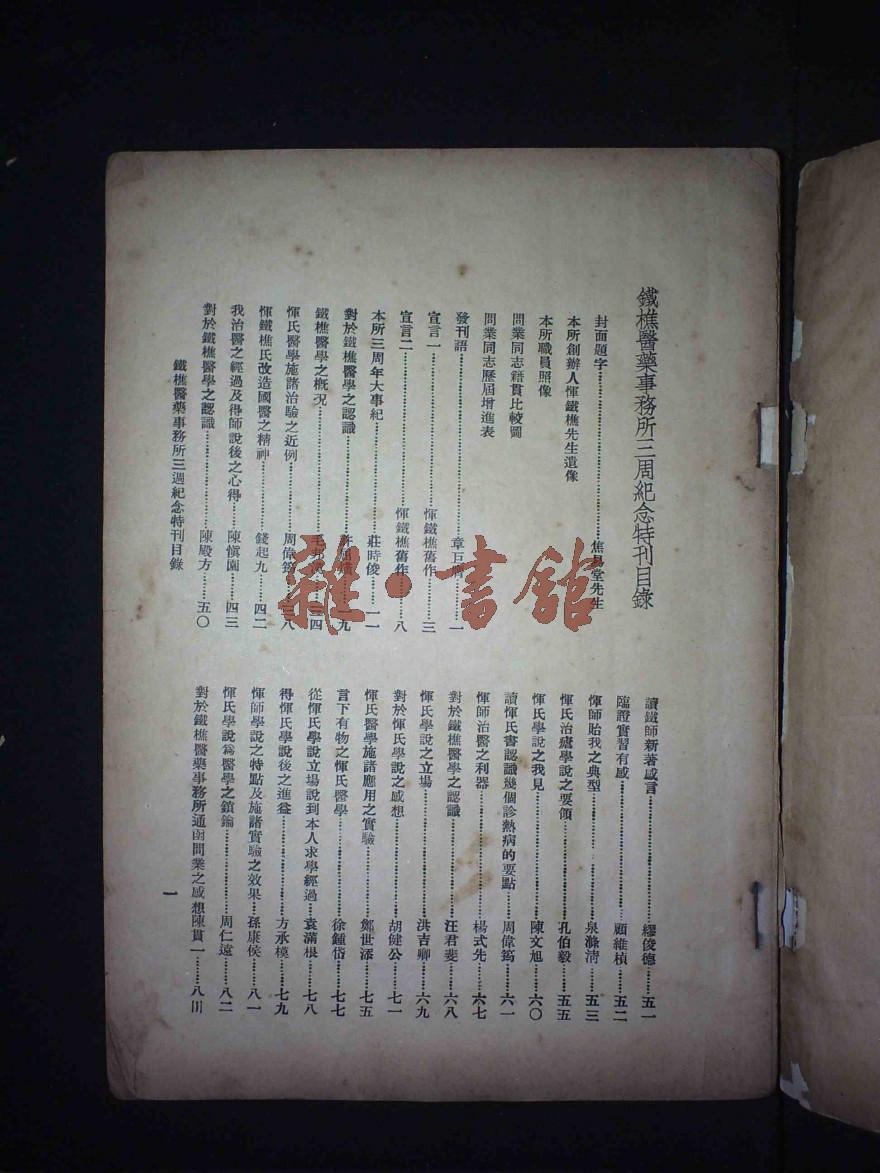 鐵樵醫藥事務所三周紀念特刊目錄
封面題字…………焦易堂先生
本所創辦人惲鐵樵先生遺像
本所職員照像
問業同志籍貫比較圖
問業同志歷屆增進表
發刊語…………章巨膺…一
宣言一…………惲鐵樵舊作…三
宣言二…………惲鐵樵舊作…八
本所三周年大事紀…………莊時俊…一一
對於鐵樵醫學之認識…………九
鐵樵醫學之概況…………毛 四
惲氏醫學施諸治驗之近例…………周偉筠…三八
惲鐵樵氏改造國醫之精神…………錢起九…四二
我治醫之經過及得師說後之心得…………陳愼園…四三
對於鐵樵醫學之認識…………陳殿方…五〇
鐵樵醫藥事務所三週紀念特刊目錄
讀鐵師新著感言…………繆俊德…五一
臨證實習有感…………顧維楨…五二
惲師貽我之典型…………泉滌清…五三
惲氏治療學說之要領…………孔伯毅…五五
惲氏學說之我見…………陳文旭…六〇
讀惲氏書認識幾個診熱病的要點…………周偉筠…六一
惲師治醫之利器…………楊式先…六七
對於鐵樵醫學之認識…………汪君斐…六八
惲氏學說之立場…………洪吉卿…六九
對於惲氏學說之感想…………胡健公…七一
惲氏醫學施諸應用之實驗…………鄭世添…七五
言下有物之惲氏醫學…………徐鍾岱…七七
從惲氏學說立場說到本人求學經過…袁滿根…七八
得惲氏學說後之進益…………方承模…七九
惲師學說之特點及施諸實驗之效果…孫康侯…八一
惲氏學說爲醫學之鎖鑰…………周仁遠…八二
對於鐵樵醫藥事務所通函問業之感想陳貫一…八三
一
雜·書館